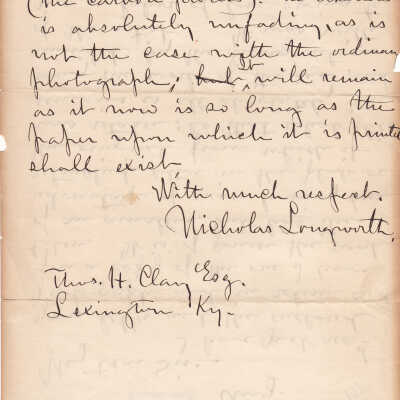 (the carbon process). 
is absolutely unfading, as is
not the case with the ordinary
photograph; but It will remain
as it now is so long as the
paper upon which it is printed
shall exist,
With much respect.
Nicholas Longworth.
Thos. H. Clay Esq.
Lexington Ky.